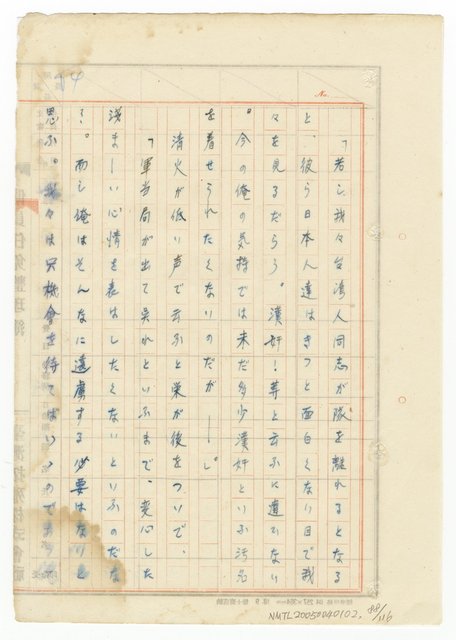 No.
「若し我々台湾人同志が隊を離れるとなる
と、彼ら日本人達はきつと面白くない目で我
々を見るだらう。漢奸！等と云ふに違ひない
。今の俺の気持では未だ多少漢奸といふ汚名
を着せられたくないのだが――」
清火が低い声で云ふと栄が後をついで、
「軍当局が出て呉れといふまで、変心した
浅ましい心情を表はしたくないといふのだな
。而し俺はそんなに遠慮する必要はないと
思ふ。我々は只機會を待てばいゝのであ
NMTL20050040102. 88/116